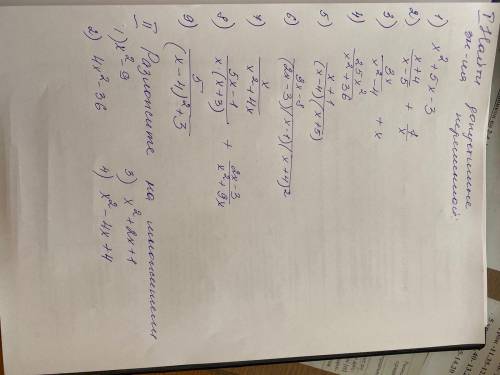 I Найти допустимые
зн-ия переменной:
1) x² + 5x - 3
2) \frac{x+4}{x-5} + \frac{1}{x}
3) \frac{3x}{x²-4} + x
4) \frac{25x²}{x²+36}
5) \frac{x+1}{(x-4)(x+5)}
6) \frac{3x-8}{(2x-3)(x-1)(x+4)2}
7) \frac{x}{x²+4x}
8) \frac{5x-1}{x(x+3)} + \frac{2x-3}{x²+9x}
9) \frac{5}{(x-4)²+3}
II Разложите на множители
1) x² - 9
3) x² + 2x + 1
2) 4x² - 36
4) x² - 4x + 4